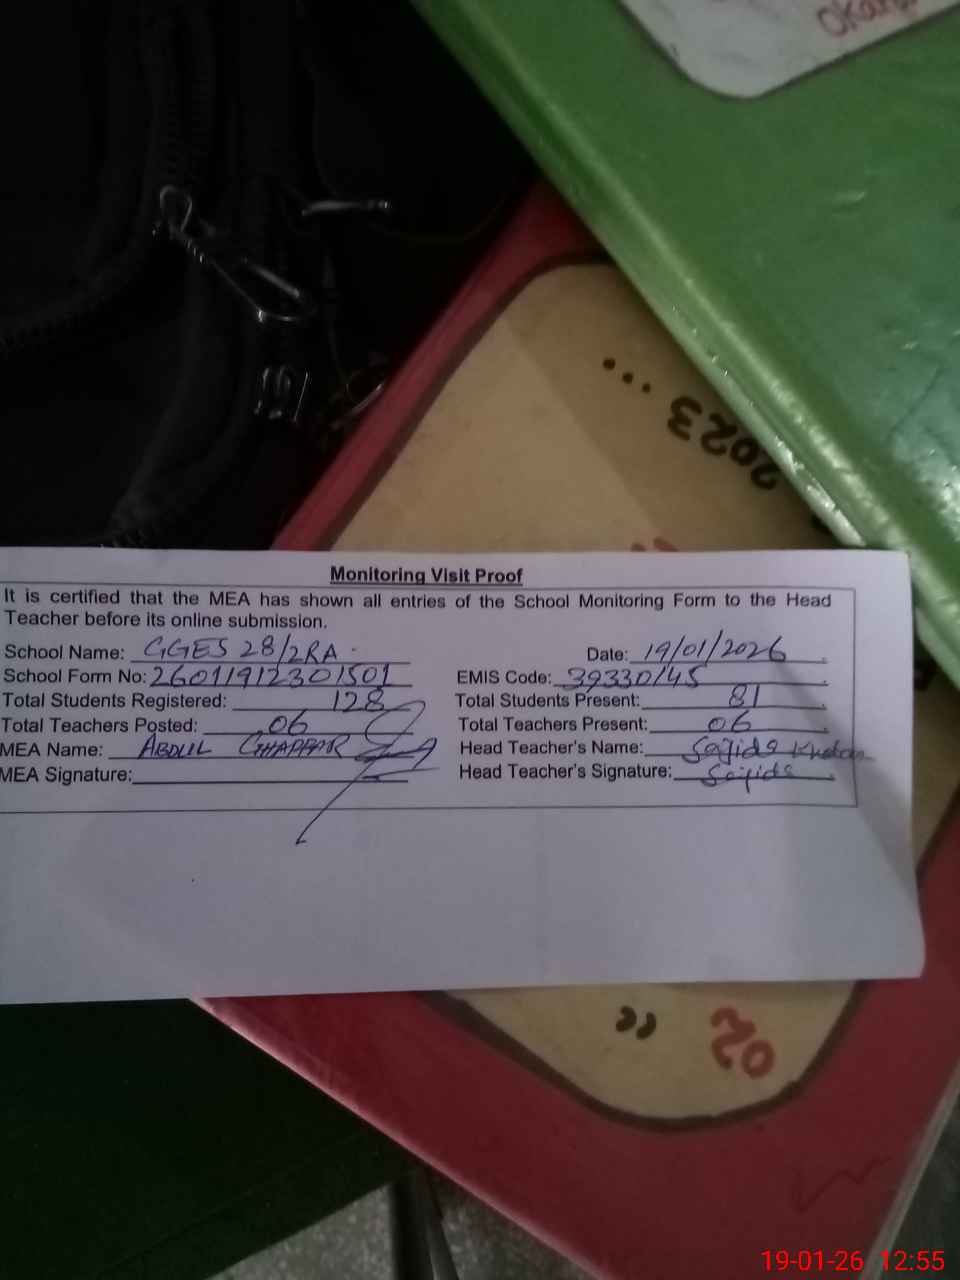 Okara
2023 ...
Monitoring Visit Proof
It is certified that the MEA has shown all entries of the School Monitoring Form to the Head
Teacher before its online submission.
School Name: GGES 28/2RA. Date: 19/01/2026
School Form No: 26011912301501 EMIS Code: 39330145
Total Students Registered: 128 Total Students Present: 81
Total Teachers Posted: 06 Total Teachers Present: 06
MEA Name: ABDUL GHAFFAR Head Teacher's Name: Sajida
MEA Signature: Head Teacher's Signature: Sajida
02 "
19-01-26 12:55